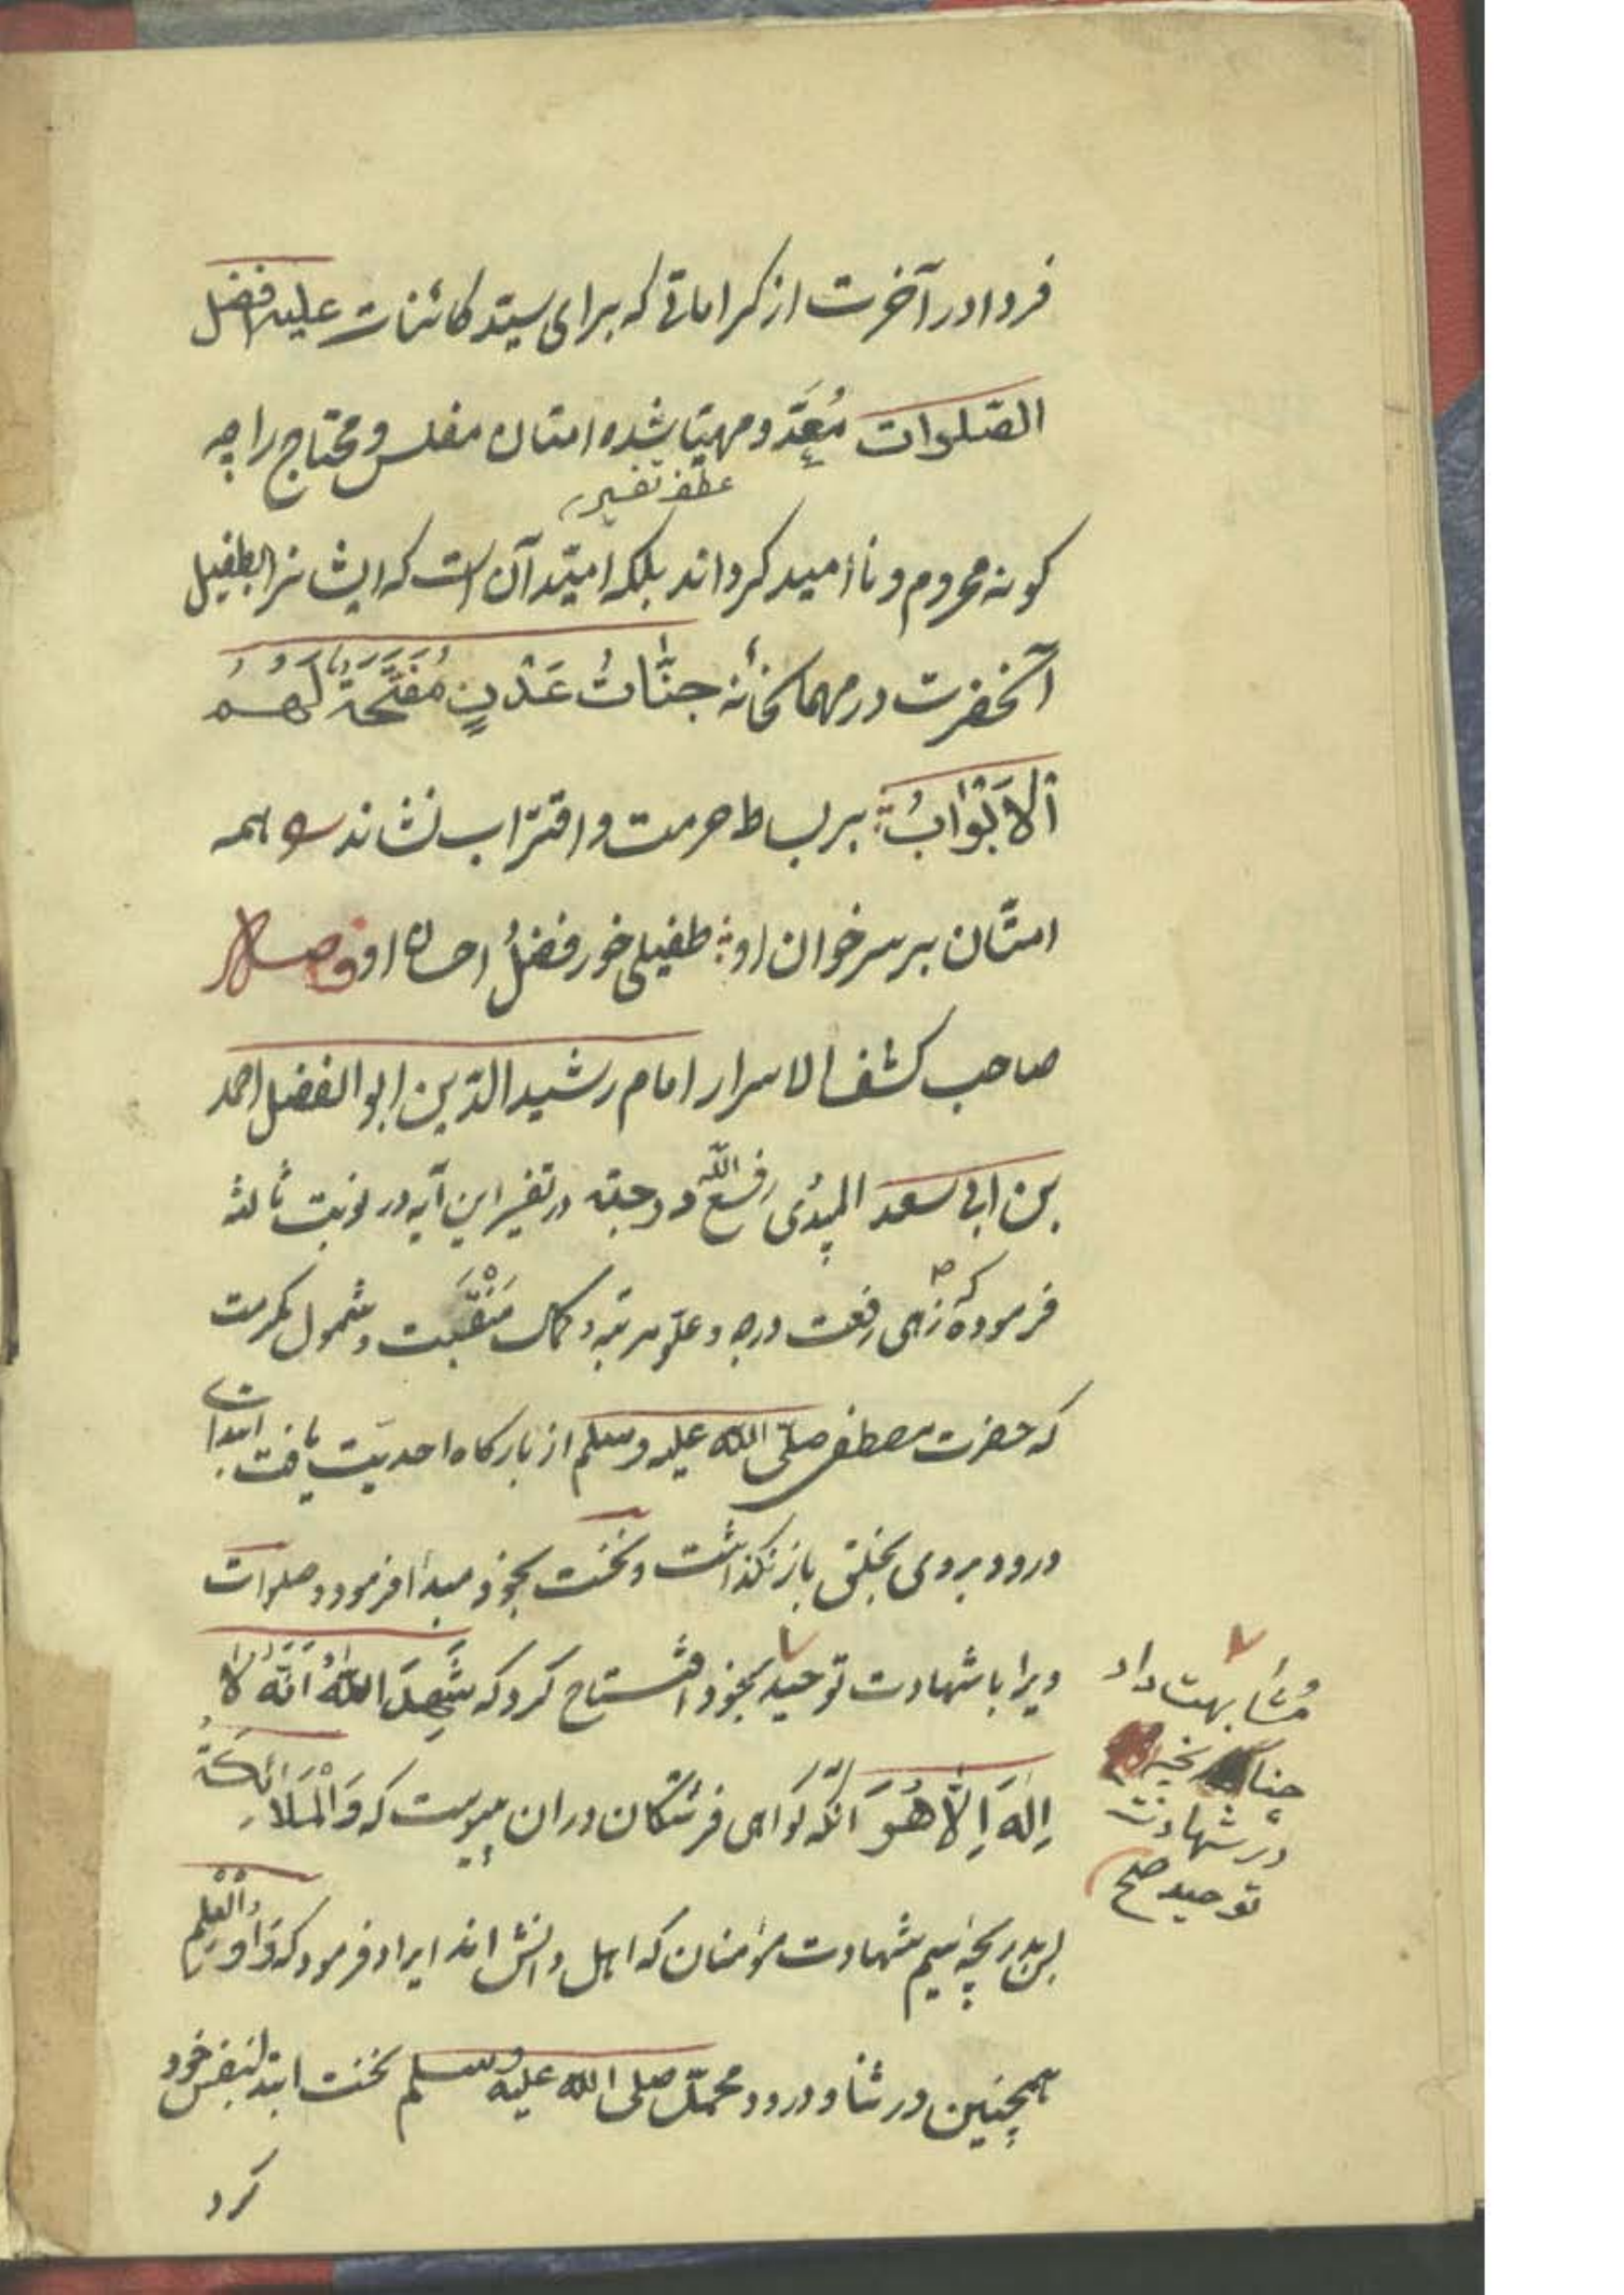 فردا در آخرت از کراماتی که برای سیّد کائنات علیه افضل
الصّلوات مُعَدّ و مهیّا شده امتان مفلس و محتاج را چه
عطف تفسیر
کونه محروم و ناامید کرداند بلکه امیّد آن است که ایشانرا بطفیل
آنحضرت در مهمانخانهٔ جنّاتُ عَدْنٍ مُفَتَّحَةً لَهُمُ
الْاَبْوَابُ بر بساط حرمت و اقتراب نشاند س همه
امتّان بر سر خوان او طفیلی خور فضلُ احسان او وصل
صاحب کشف الاسرار امام رشید الدّین ابو الفضل احمد
بن ابی سعد المیبدُی رفع اللّه درجته در تفسیر این آیه در نوبت ثالثه
فرموده که زهی رفعت درجه و علّو مرتبه و کمال مَنْقَبَت و شمول مکرمت
که حضرت مصطفی صلّی اللّه علیه و سلم از بارکاه احدیّت یافت ابتدای
درود بر وی بخلق باز نکذاشت و نخست بخود مبدأ فرمود و صلوات
ویرا با شهادت توحید بخود افتتاح کرد که شَهِدَ اللّٰهُ اَنَّهُ لَا
مُشابهت داد
چنانچه
در شهادت
توحید صح
اِلٰهَ اِلَّا هُوَ آنکه کواهی فرشتکان دران پیوست که وَالْمَلَائِکَةُ
پس بدرجهٔ سیم شهادت مؤمنان که اهل دانش اند ایراد فرمود که وَاُولُوا الْعِلْمِ
همچنین در ثنا و درود محمّد صلی اللّه علیه و سلم نخست ابتدا بنفس خود
کرد